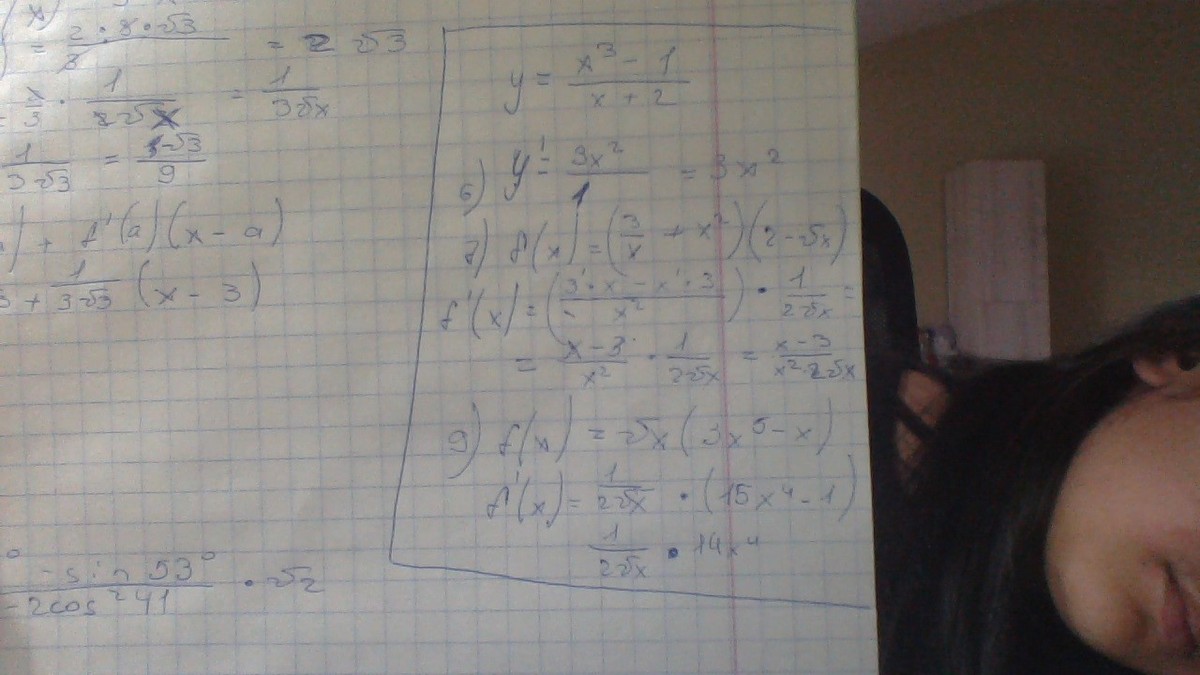 = 2·8·√3 / 3 = 2√3
3/3 · 1/(2√x) = 1/(3√x)
1/(3√3) = √3/9
+ f'(a)(x - a)
3 + 1/(3√3) (x - 3)
- sin 53° / -2cos²41 · √2
y = (x³ - 1)/(x + 2)
6) y' = 3x²/1 = 3x²
7) f(x) = (3/x + x²)(2 - √x)
f'(x) = ((3'·x - x'·3)/x²) · 1/(2√x) =
= (x - 3)/x² · 1/(2√x) = (x - 3)/(x²·2√x)
9) f(x) = √x (3x⁵ - x)
f'(x) = 1/(2√x) · (15x⁴ - 1)
1/(2√x) · 14x⁴